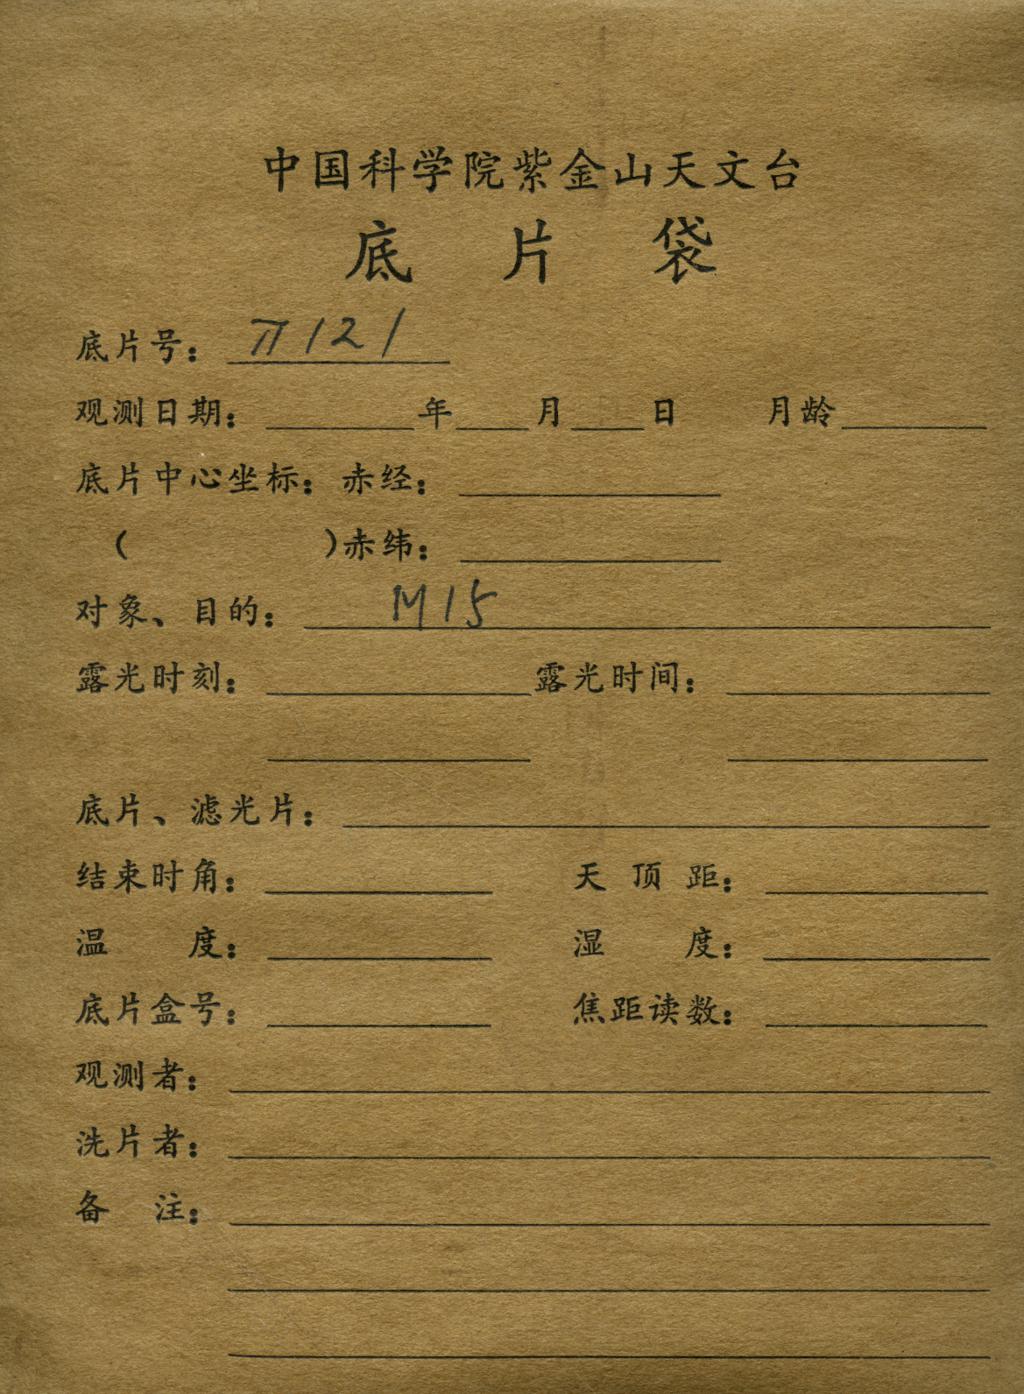 中国科学院紫金山天文台
底片袋
底片号： π121
观测日期： 年 月 日 月龄
底片中心坐标：赤经：
（ ）赤纬：
对象、目的： M15
露光时刻： 露光时间：
底片、滤光片：
结束时角： 天顶距：
温度： 湿度：
底片盒号： 焦距读数：
观测者：
洗片者：
备注：